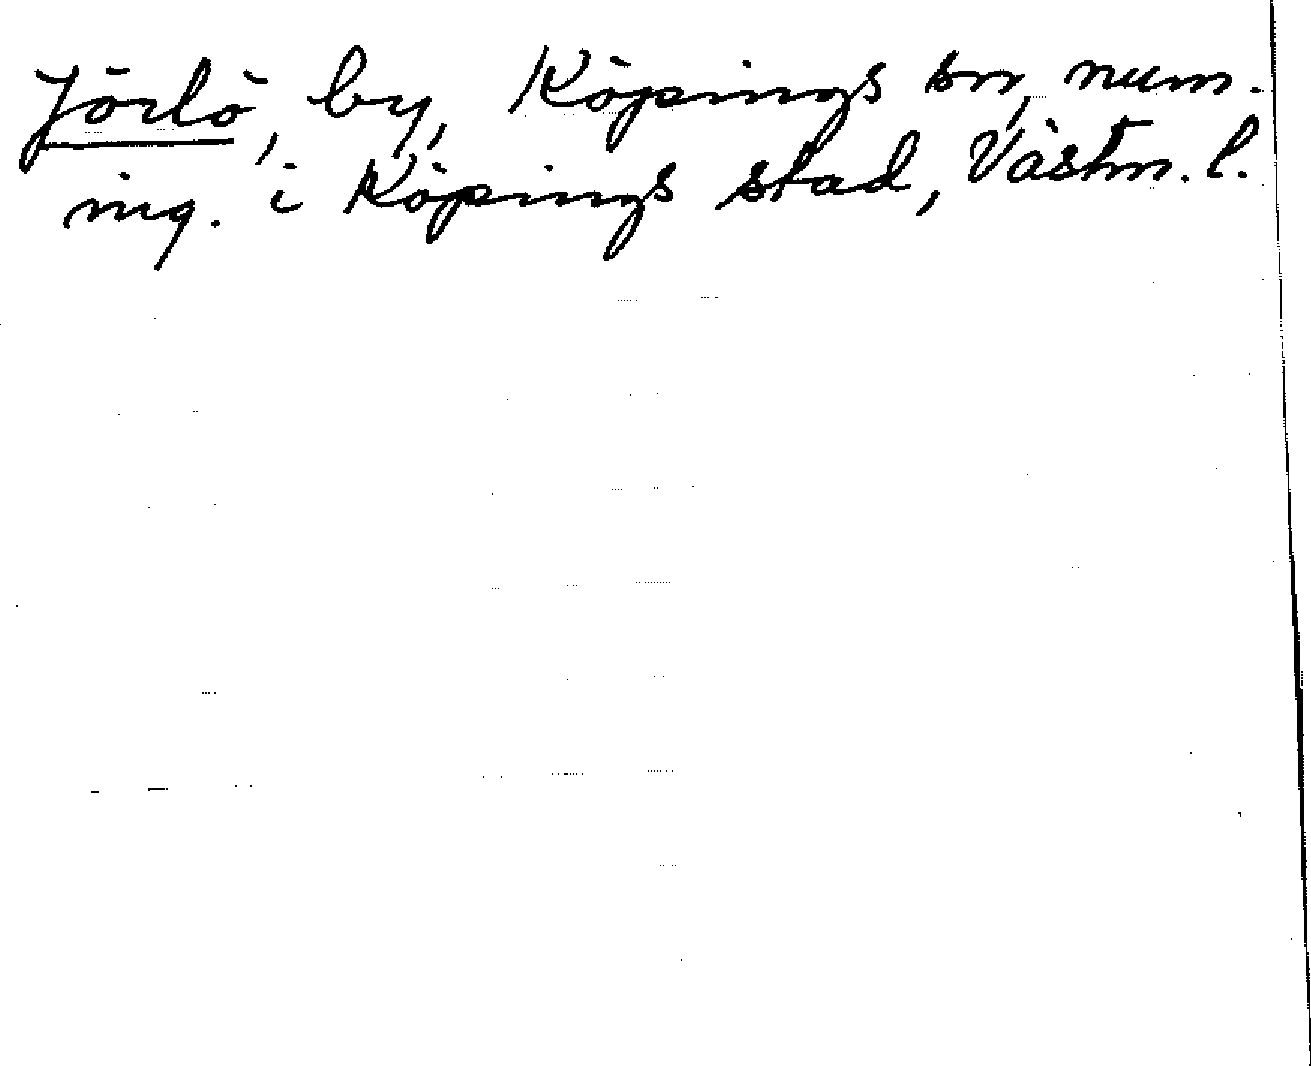 Jörlö, by, Köpings sn, num.
ing. i Köpings stad, Västm. l.